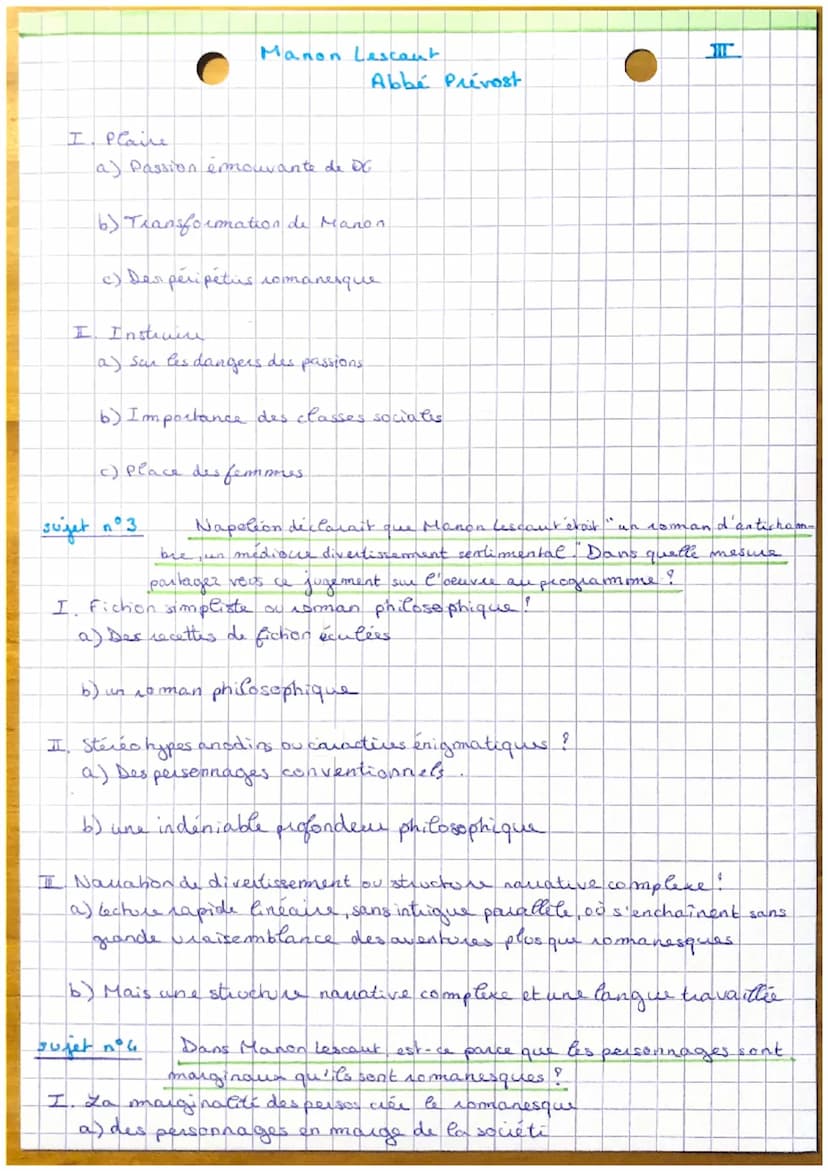 Manon Lescaut
III
Abbé Prévost
I. Plaire
a) Passion émouvante de DG
b) Transformation de Manon
c) Des péripéties romanesque
II. Instruire
a) Sur les dangers des passions
b) Importance des classes sociales
c) Place des femmes
sujet n°3 Napoléon déclarait que Manon Lescaut était "un roman d'anticham-
bre, un médiocre divertissement sentimental." Dans quelle mesure
partagez vous ce jugement sur l'oeuvre au programme ?
I. Fiction simpliste ou roman philosophique ?
a) Des recettes de fiction éculées
b) un roman philosophique
II. Stéréotypes anodins ou caractères énigmatiques ?
a) Des personnages conventionnels.
b) une indéniable profondeur philosophique
III. Narration de divertissement ou structure narrative complexe ?
a) lecture rapide linéaire, sans intrigue parallèle, où s'enchaînent sans
grande vraisemblance des aventures plus que romanesques
b) Mais une structure narrative complexe et une langue travaillée
sujet n°4 Dans Manon Lescaut, est-ce parce que les personnages sont
marginaux qu'ils sont romanesques ?
I. La marginalité des persos crée le romanesque
a) des personnages en marge de la société